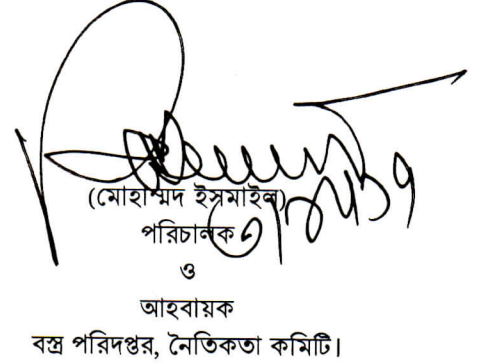 (মোহাম্মদ ইসমাইল)
পরিচালক
ও
আহবায়ক
বস্ত্র পরিদপ্তর, নৈতিকতা কমিটি।